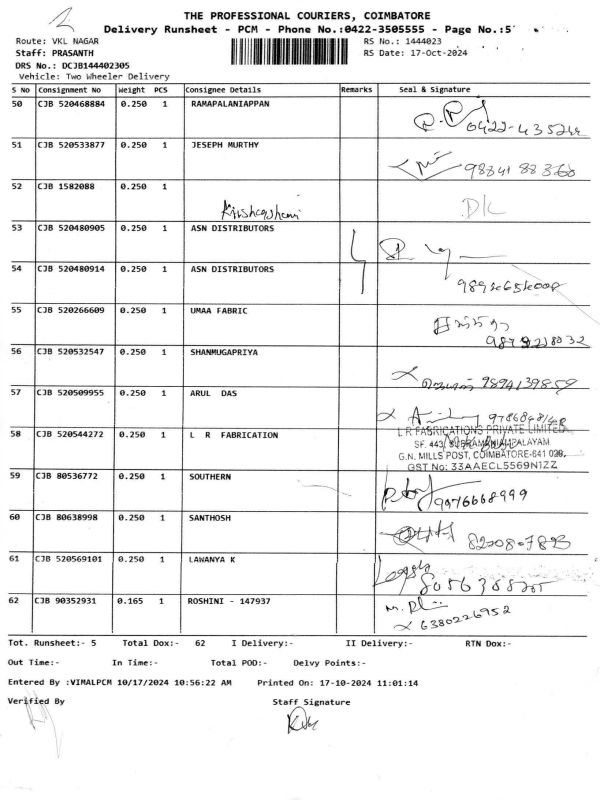 THE PROFESSIONAL COURIERS, COIMBATORE
Delivery Runsheet - PCM - Phone No.:0422-3505555 - Page No.:5
Route: VKL NAGAR RS No.: 1444023
Staff: PRASANTH RS Date: 17-Oct-2024
DRS No.: DCJB144402305
Vehicle: Two Wheeler Delivery
S No Consignment No Weight PCS Consignee Details Remarks Seal & Signature
50 CJB 520468884 0.250 1 RAMAPALANIAPPAN
51 CJB 520533877 0.250 1 JESEPH MURTHY
52 CJB 1582088 0.250 1
53 CJB 520480905 0.250 1 ASN DISTRIBUTORS
54 CJB 520480914 0.250 1 ASN DISTRIBUTORS
55 CJB 520266609 0.250 1 UMAA FABRIC
56 CJB 520532547 0.250 1 SHANMUGAPRIYA
9894139859
57 CJB 520509955 0.250 1 ARUL DAS
58 CJB 520544272 0.250 1 L R FABRICATION
L R FABRICATIONS PRIVATE LIMITED
SF. 443,
G.N. MILLS POST, COIMBATORE-641 029.
GST No: 33AAECL5569N1ZZ
59 CJB 80536772 0.250 1 SOUTHERN
9976668999
60 CJB 80638998 0.250 1 SANTHOSH
61 CJB 520569101 0.250 1 LAWANYA K
62 CJB 90352931 0.165 1 ROSHINI - 147937
6380226952
Tot. Runsheet:- 5 Total Dox:- 62 I Delivery:- II Delivery:- RTN Dox:-
Out Time:- In Time:- Total POD:- Delvy Points:-
Entered By :VIMALPCM 10/17/2024 10:56:22 AM Printed On: 17-10-2024 11:01:14
Verified By Staff Signature